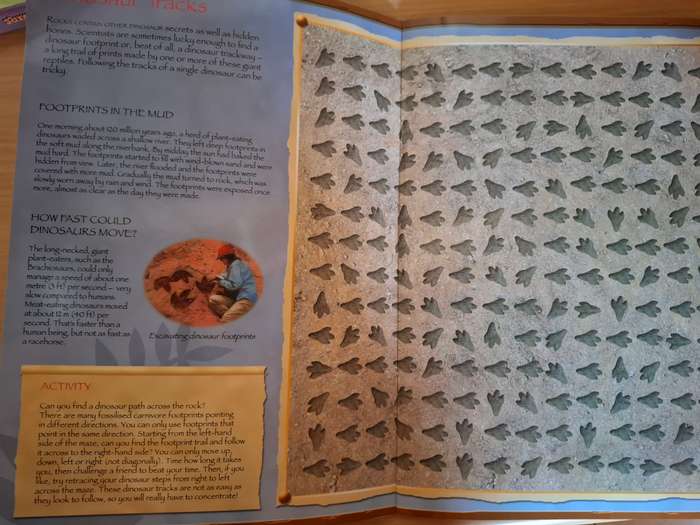 Dinosaur Tracks
Rocks contain other dinosaur secrets as well as hidden
bones. Scientists are sometimes lucky enough to find a
dinosaur footprint or, best of all, a dinosaur trackway –
a long trail of prints made by one or more of these giant
reptiles. Following the tracks of a single dinosaur can be
tricky.
FOOTPRINTS IN THE MUD
One morning about 120 million years ago, a herd of plant-eating
dinosaurs waded across a shallow river. They left deep footprints in
the soft mud along the riverbank. By midday the sun had baked the
mud hard. The footprints started to fill with wind-blown sand and were
hidden from view. Later, the river flooded and the footprints were
covered with more mud. Gradually the mud turned to rock, which was
slowly worn away by rain and wind. The footprints were exposed once
more, almost as clear as the day they were made.
HOW FAST COULD
DINOSAURS MOVE?
The long-necked, giant
plant-eaters, such as the
Brachiosaurs, could only
manage a speed of about one
metre (3 ft) per second – very
slow compared to humans.
Meat-eating dinosaurs moved
at about 12 m (40 ft) per
second. That's faster than a
human being, but not as fast as
a racehorse.
Excavating dinosaur footprints
ACTIVITY
Can you find a dinosaur path across the rock?
There are many fossilised carnivore footprints pointing
in different directions. You can only use footprints that
point in the same direction. Starting from the left-hand
side of the maze, can you find the footprint trail and follow
it across to the right-hand side? You can only move up,
down, left or right (not diagonally). Time how long it takes
you, then challenge a friend to beat your time. Then, if you
like, try retracing your dinosaur steps from right to left
across the maze. These dinosaur tracks are not as easy as
they look to follow, so you will really have to concentrate!